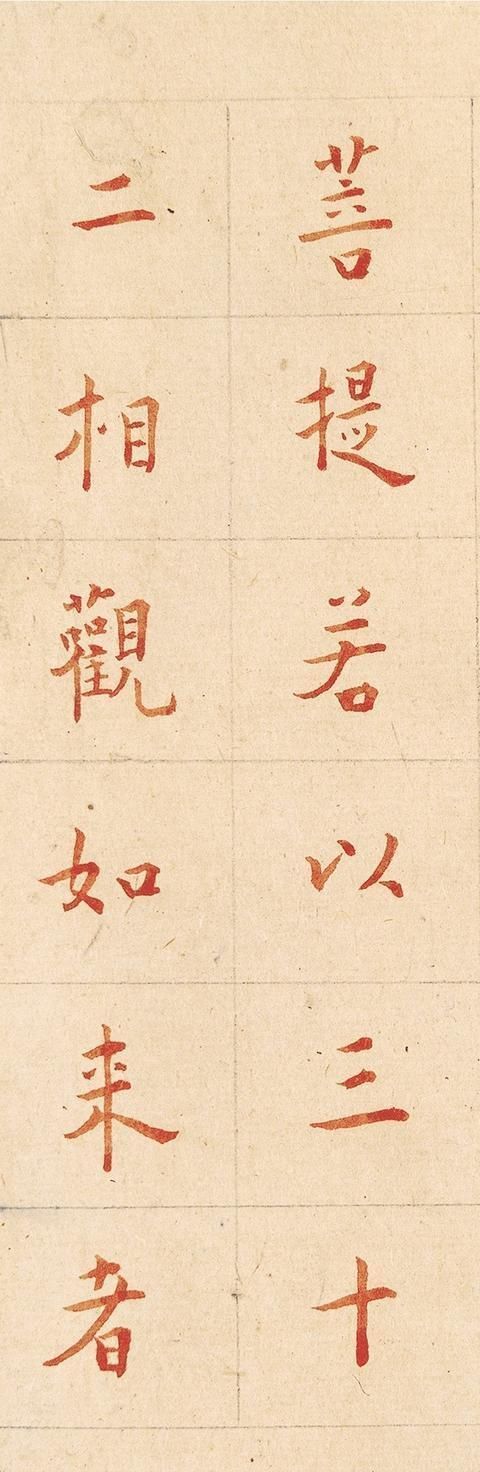 菩提若以三十
二相觀如来者